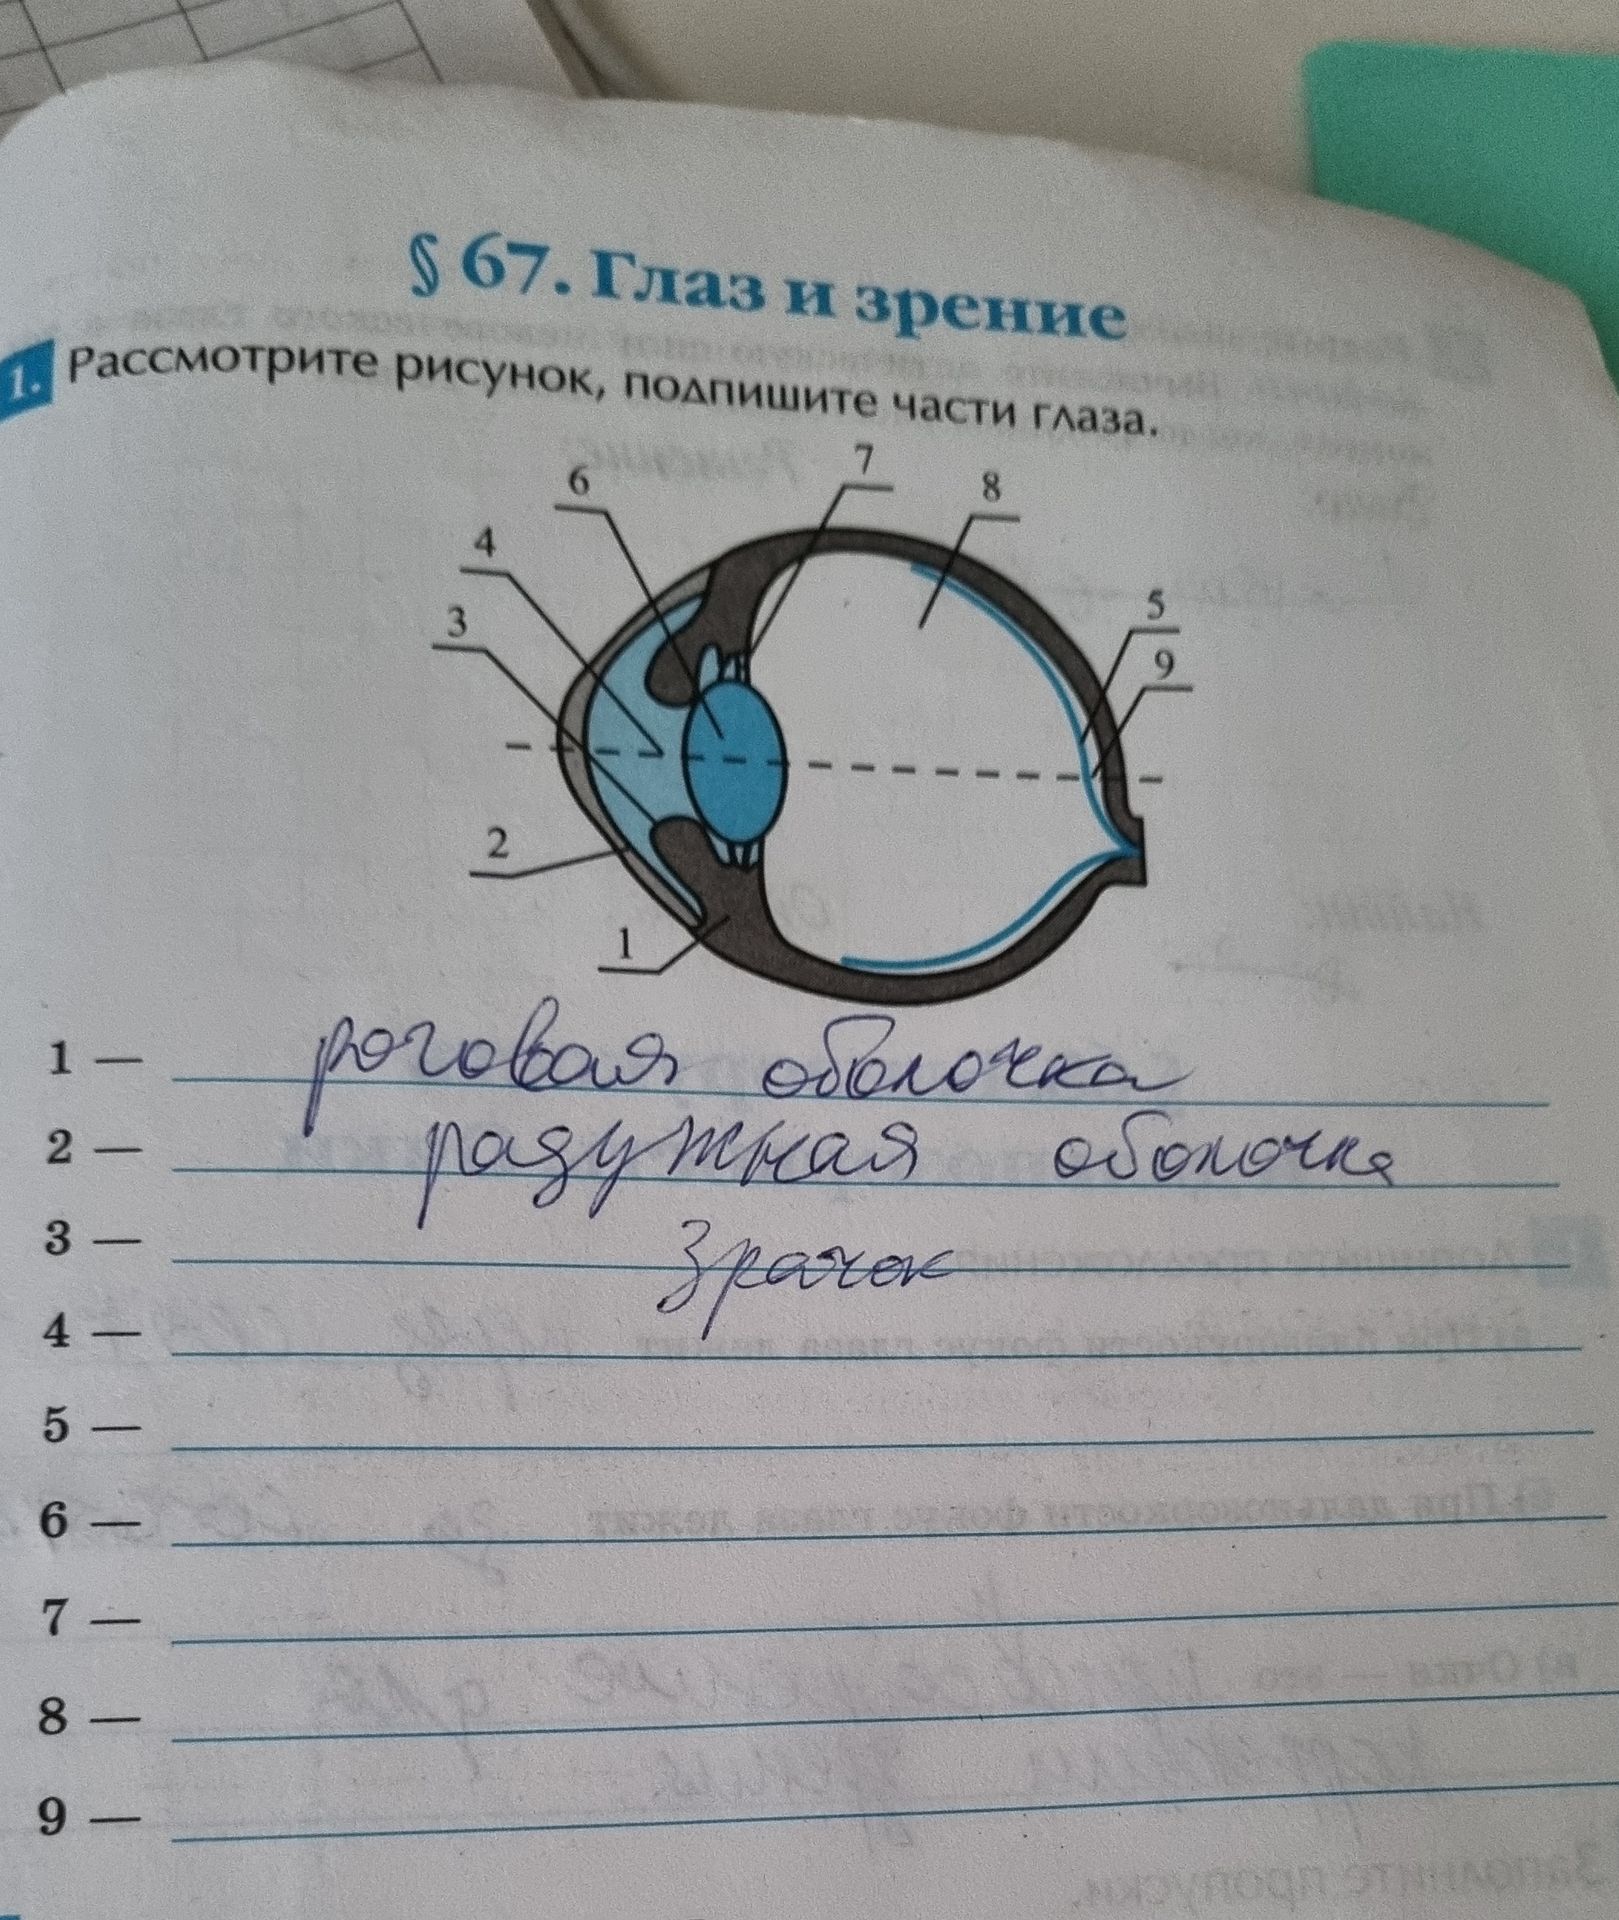 § 67. Глаз и зрение
1. Рассмотрите рисунок, подпишите части глаза.
6
7
8
4
3
5
9
2
1
1 — роговая оболочка
2 — радужная оболочка
3 — Зрачок
4 —
5 —
6 —
7 —
8 —
9 —